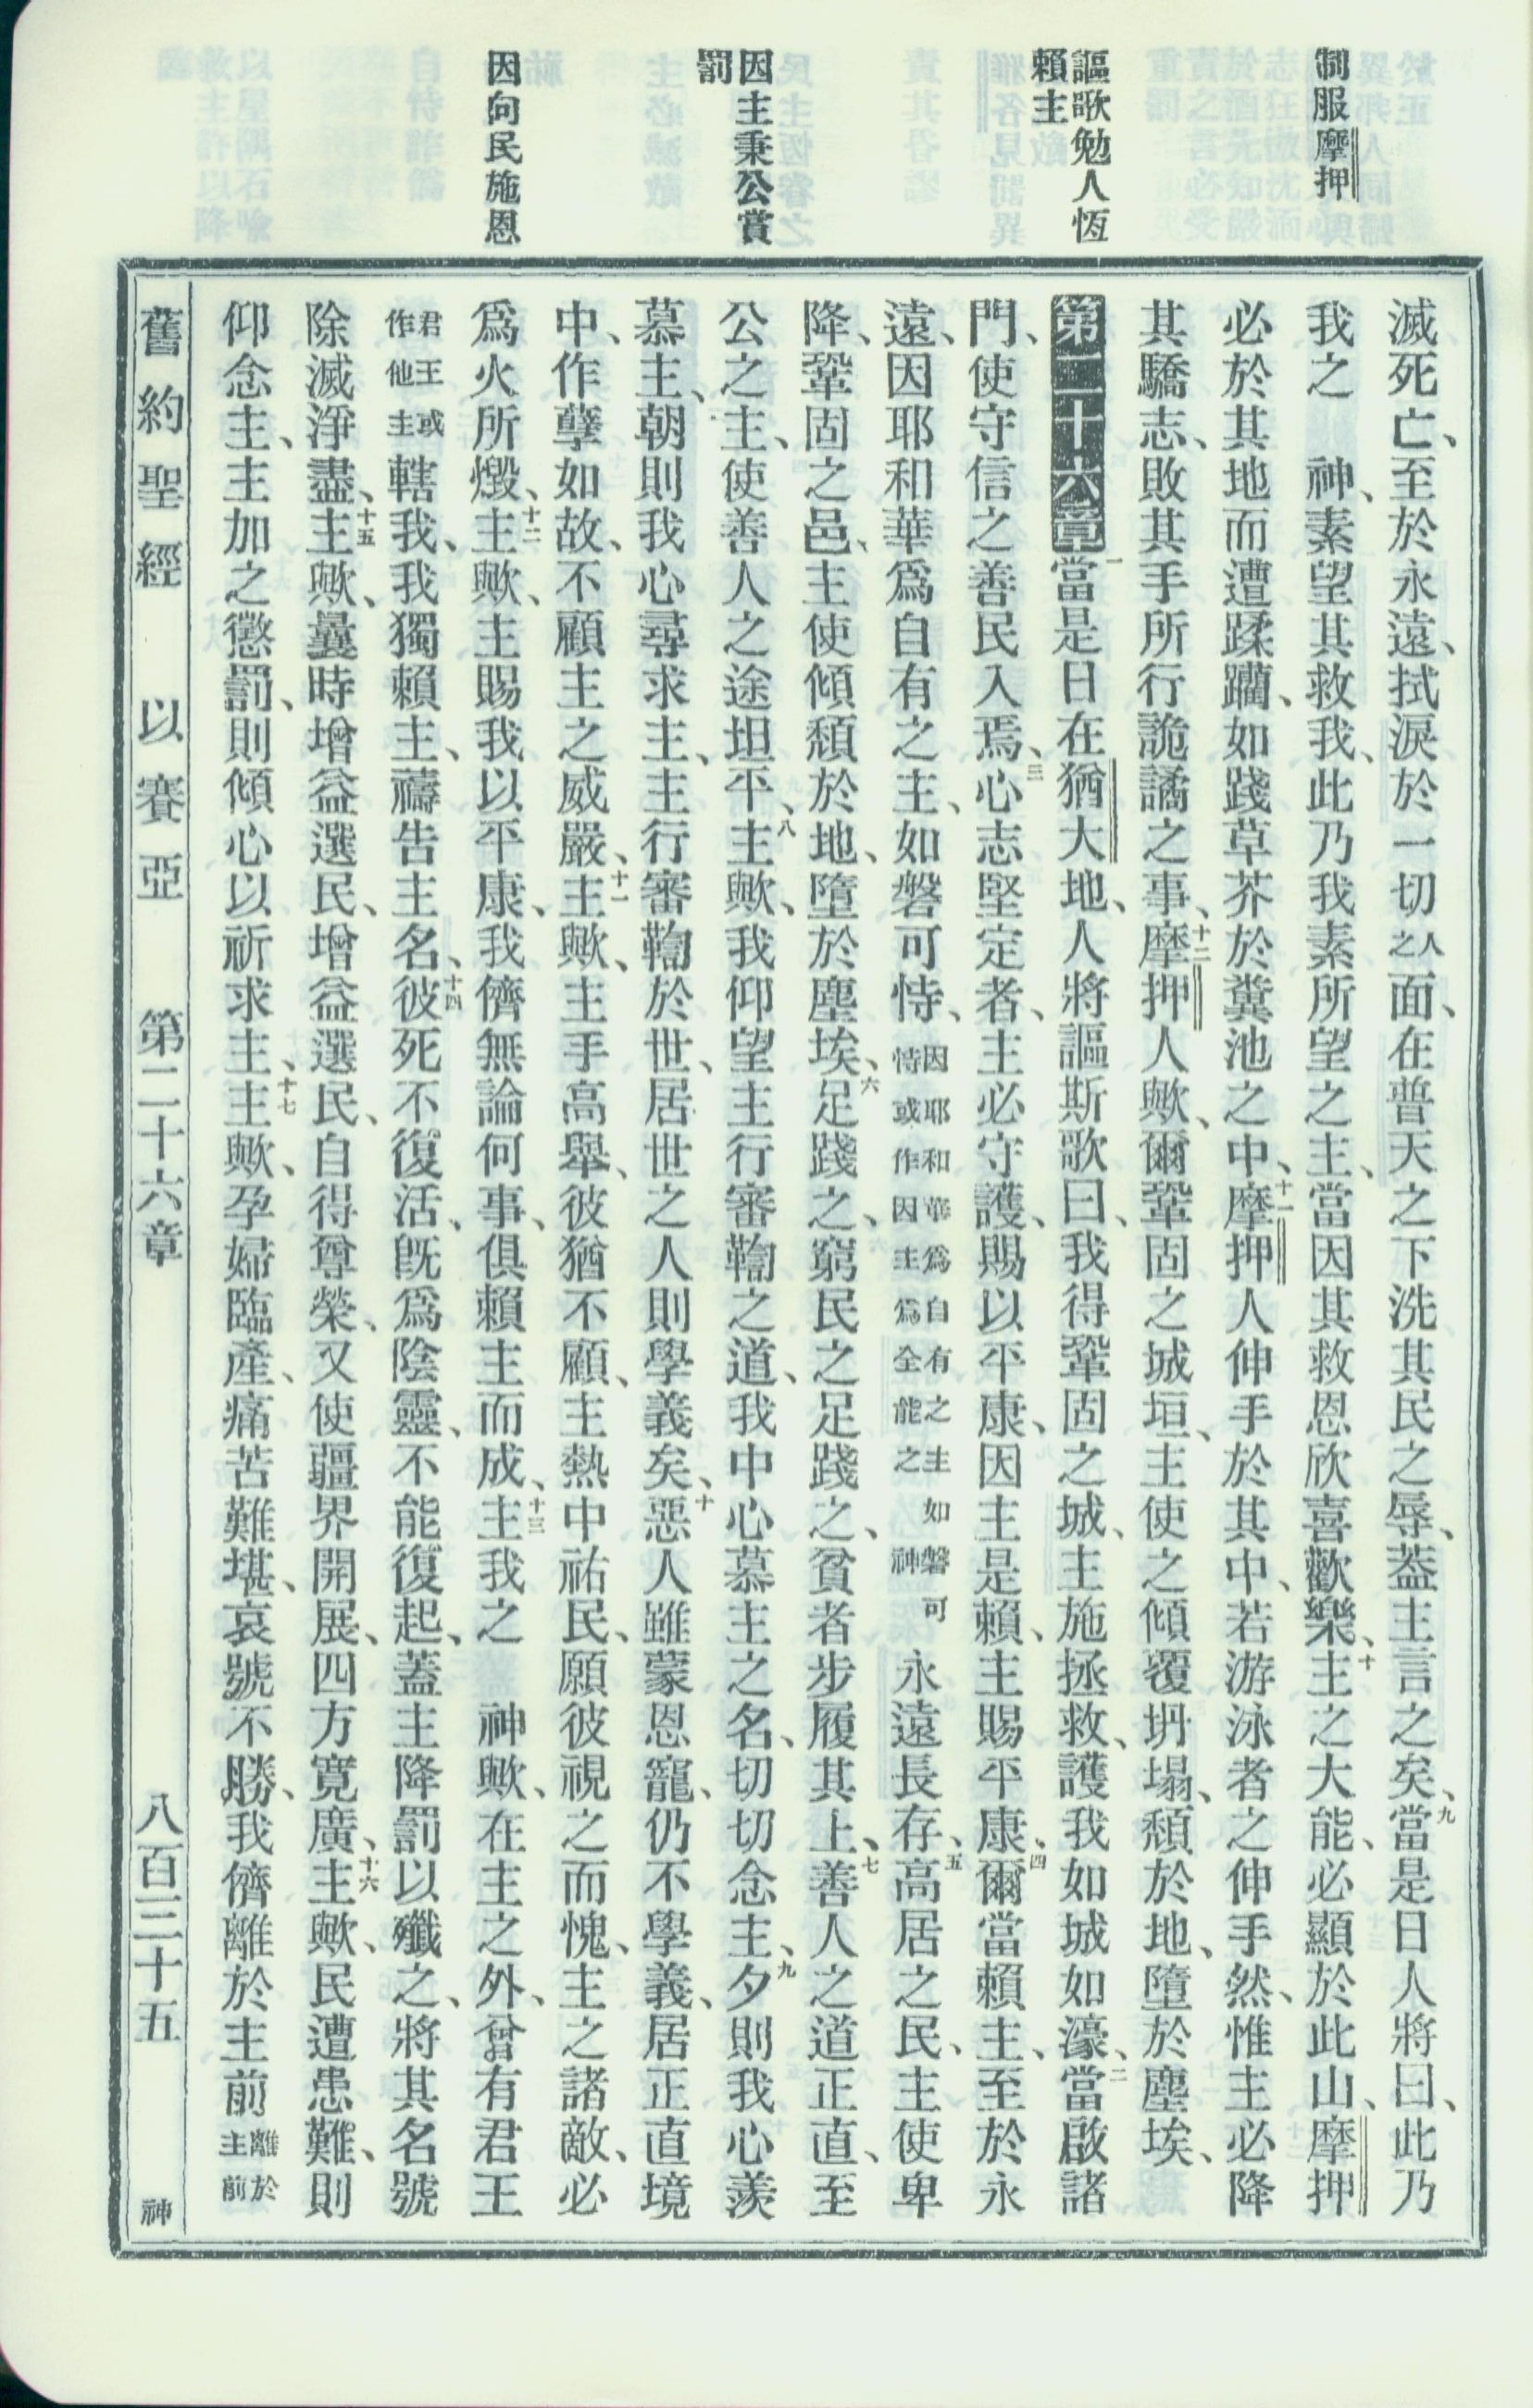 制服摩押
謳歌勉人恆
賴主
因主秉公賞
罰
因向民施恩
滅死亡、至於永遠、拭淚於一切人之面、在普天之下洗其民之辱、蓋主言之矣、九當是日人將曰、此乃
我之 神、素望其救我、此乃我素所望之主、當因其救恩欣喜歡樂、十主之大能、必顯於此山、摩押
必於其地而遭蹂躪、如踐草芥於糞池之中、十一摩押人伸手於其中、若游泳者之伸手然、惟主必降
其驕志、敗其手所行詭譎之事、十二摩押人歟、爾鞏固之城垣、主使之傾覆坍塌、頹於地、墮於塵埃、
第二十六章 一當是日在猶大地、人將謳斯歌曰、我得鞏固之城、主施拯救、護我如城如濠、二當啟諸
門、使守信之善民入焉、三心志堅定者、主必守護、賜以平康、因主是賴、主賜平康、四爾當賴主、至於永
遠、因耶和華爲自有之主、如磐可恃、因耶和華爲自有之主如磐可恃或作因主爲全能之神永遠長存、五高居之民、主使卑
降、鞏固之邑、主使傾頹於地、墮於塵埃、六足踐之、窮民之足踐之、貧者步履其上、七善人之道正直、至
公之主、使善人之途坦平、八主歟、我仰望主行審鞫之道、我中心慕主之名、切切念主、九夕則我心羨
慕主、朝則我心尋求主、主行審鞫於世、居世之人則學義矣、十惡人雖蒙恩寵、仍不學義、居正直境
中、作孽如故、不顧主之威嚴、十一主歟、主手高舉、彼猶不顧、主熱中祐民、願彼視之而愧、主之諸敵、必
爲火所燬、十二主歟、主賜我以平康、我儕無論何事、俱賴主而成、十三主我之 神歟、在主之外、曾有君王
君王或作他主轄我、我獨賴主、禱告主名、十四彼死不復活、旣爲陰靈、不能復起、蓋主降罰以殲之、將其名號
除滅淨盡、十五主歟、曩時增益選民、增益選民、自得尊榮、又使疆界開展、四方寬廣、十六主歟、民遭患難、則
仰念主、主加之懲罰、則傾心以祈求主、十七主歟、孕婦臨產、痛苦難堪、哀號不勝、我儕離於主前離於主前
舊約聖經 以賽亞 第二十六章 八百三十五 神